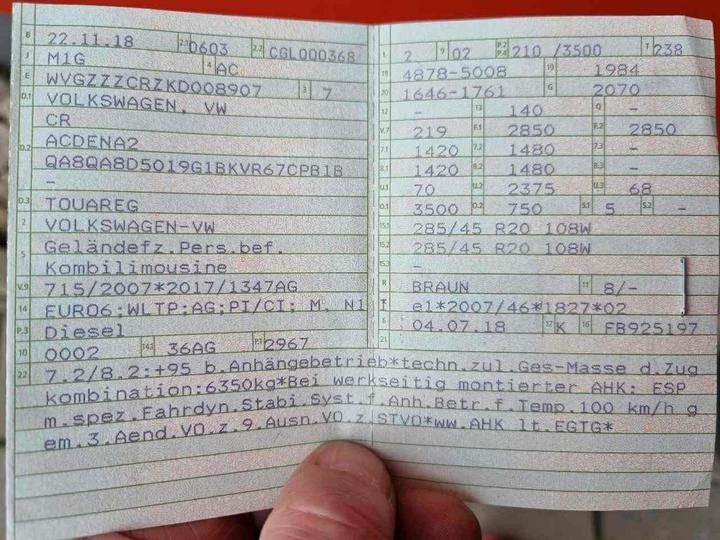 B 22.11.18 2.1 0603 2.2 CGL000368
J M1G 4 AC
E WVGZZZCRZKD008907 3 7
D.1 VOLKSWAGEN, VW
CR
D.2 ACDENA2
QA8QA8D5019G1BKVR67CPB1B
-
D.3 TOUAREG
2 VOLKSWAGEN-VW
5 Geländefz.Pers.bef.
Kombilimousine
V.9 715/2007*2017/1347AG
14 EURO6;WLTP;AG;PI/CI; M, N1
P.3 Diesel
10 0002 14.1 36AG P.1 2967
L 2 9 02 P.2 P.4 210 /3500 T 238
18 4878-5008 19 1984
20 1646-1761 G 2070
12 - 13 140 Q -
V.7 219 F.1 2850 F.2 2850
7.1 1420 7.2 1480 7.3 -
8.1 1420 8.2 1480 8.3 -
U.1 70 U.2 2375 U.3 68
O.1 3500 O.2 750 S.1 5 S.2 -
15.1 285/45 R20 108W
15.2 285/45 R20 108W
15.3 -
R BRAUN 11 8/-
K e1*2007/46*1827*02
6 04.07.18 17 K 16 FB925197
21
22 7.2/8.2:+95 b.Anhängebetrieb*techn.zul.Ges-Masse d.Zug
kombination:6350kg*Bei werkseitig montierter AHK: ESP
m.spez.Fahrdyn.Stabi.Syst.f.Anh.Betr.f.Temp.100 km/h g
em.3.Aend.VO.z.9.Ausn.VO.z.STVO*ww.AHK lt.EGTG*